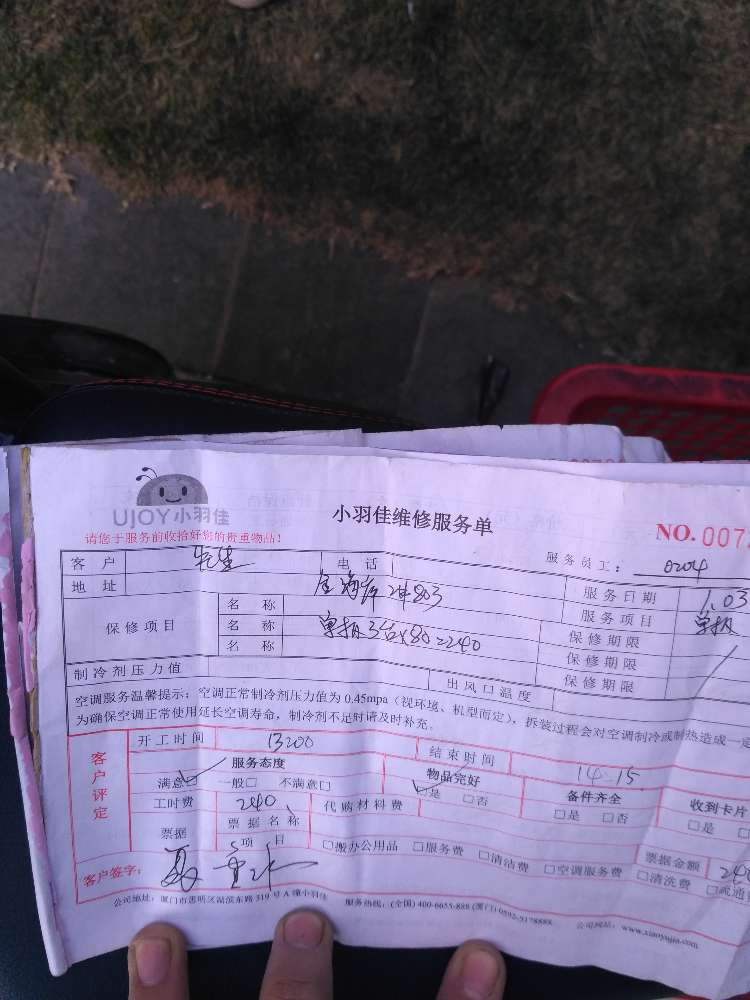 UJOY小羽佳
小羽佳维修服务单
NO. 007
请您于服务前收拾好您的贵重物品!
服务员工: 0204
客户 先生 电话
服务日期 1.03
地址 2#803
服务项目 单拆
保修项目 名称 保修期限
名称 单拆3台x80=240 保修期限
名称 保修期限
制冷剂压力值 出风口温度
空调服务温馨提示:空调正常制冷剂压力值为 0.45mpa(视环境、机型而定),拆装过程会对空调制冷或制热造成一定
为确保空调正常使用延长空调寿命,制冷剂不足时请及时补充。
客户评定
开工时间 13:00 结束时间 14:15
服务态度 物品完好 备件齐全 收到卡片
满意☑ 一般□ 不满意□ ☑是 □否 □是 □否 □是
工时费 240 代购材料费
票据 票据名称 票据金额 240
项目 □搬办公用品 □服务费 □清洁费 □空调服务费 □清洗费 □疏通
客户签字:
公司地址:厦门市思明区湖滨东路 319 号 A 幢小羽佳 服务热线:(全国) 400-6655-888 (厦门) 0592-5178888 公司网站:www.xiaoyujia.com